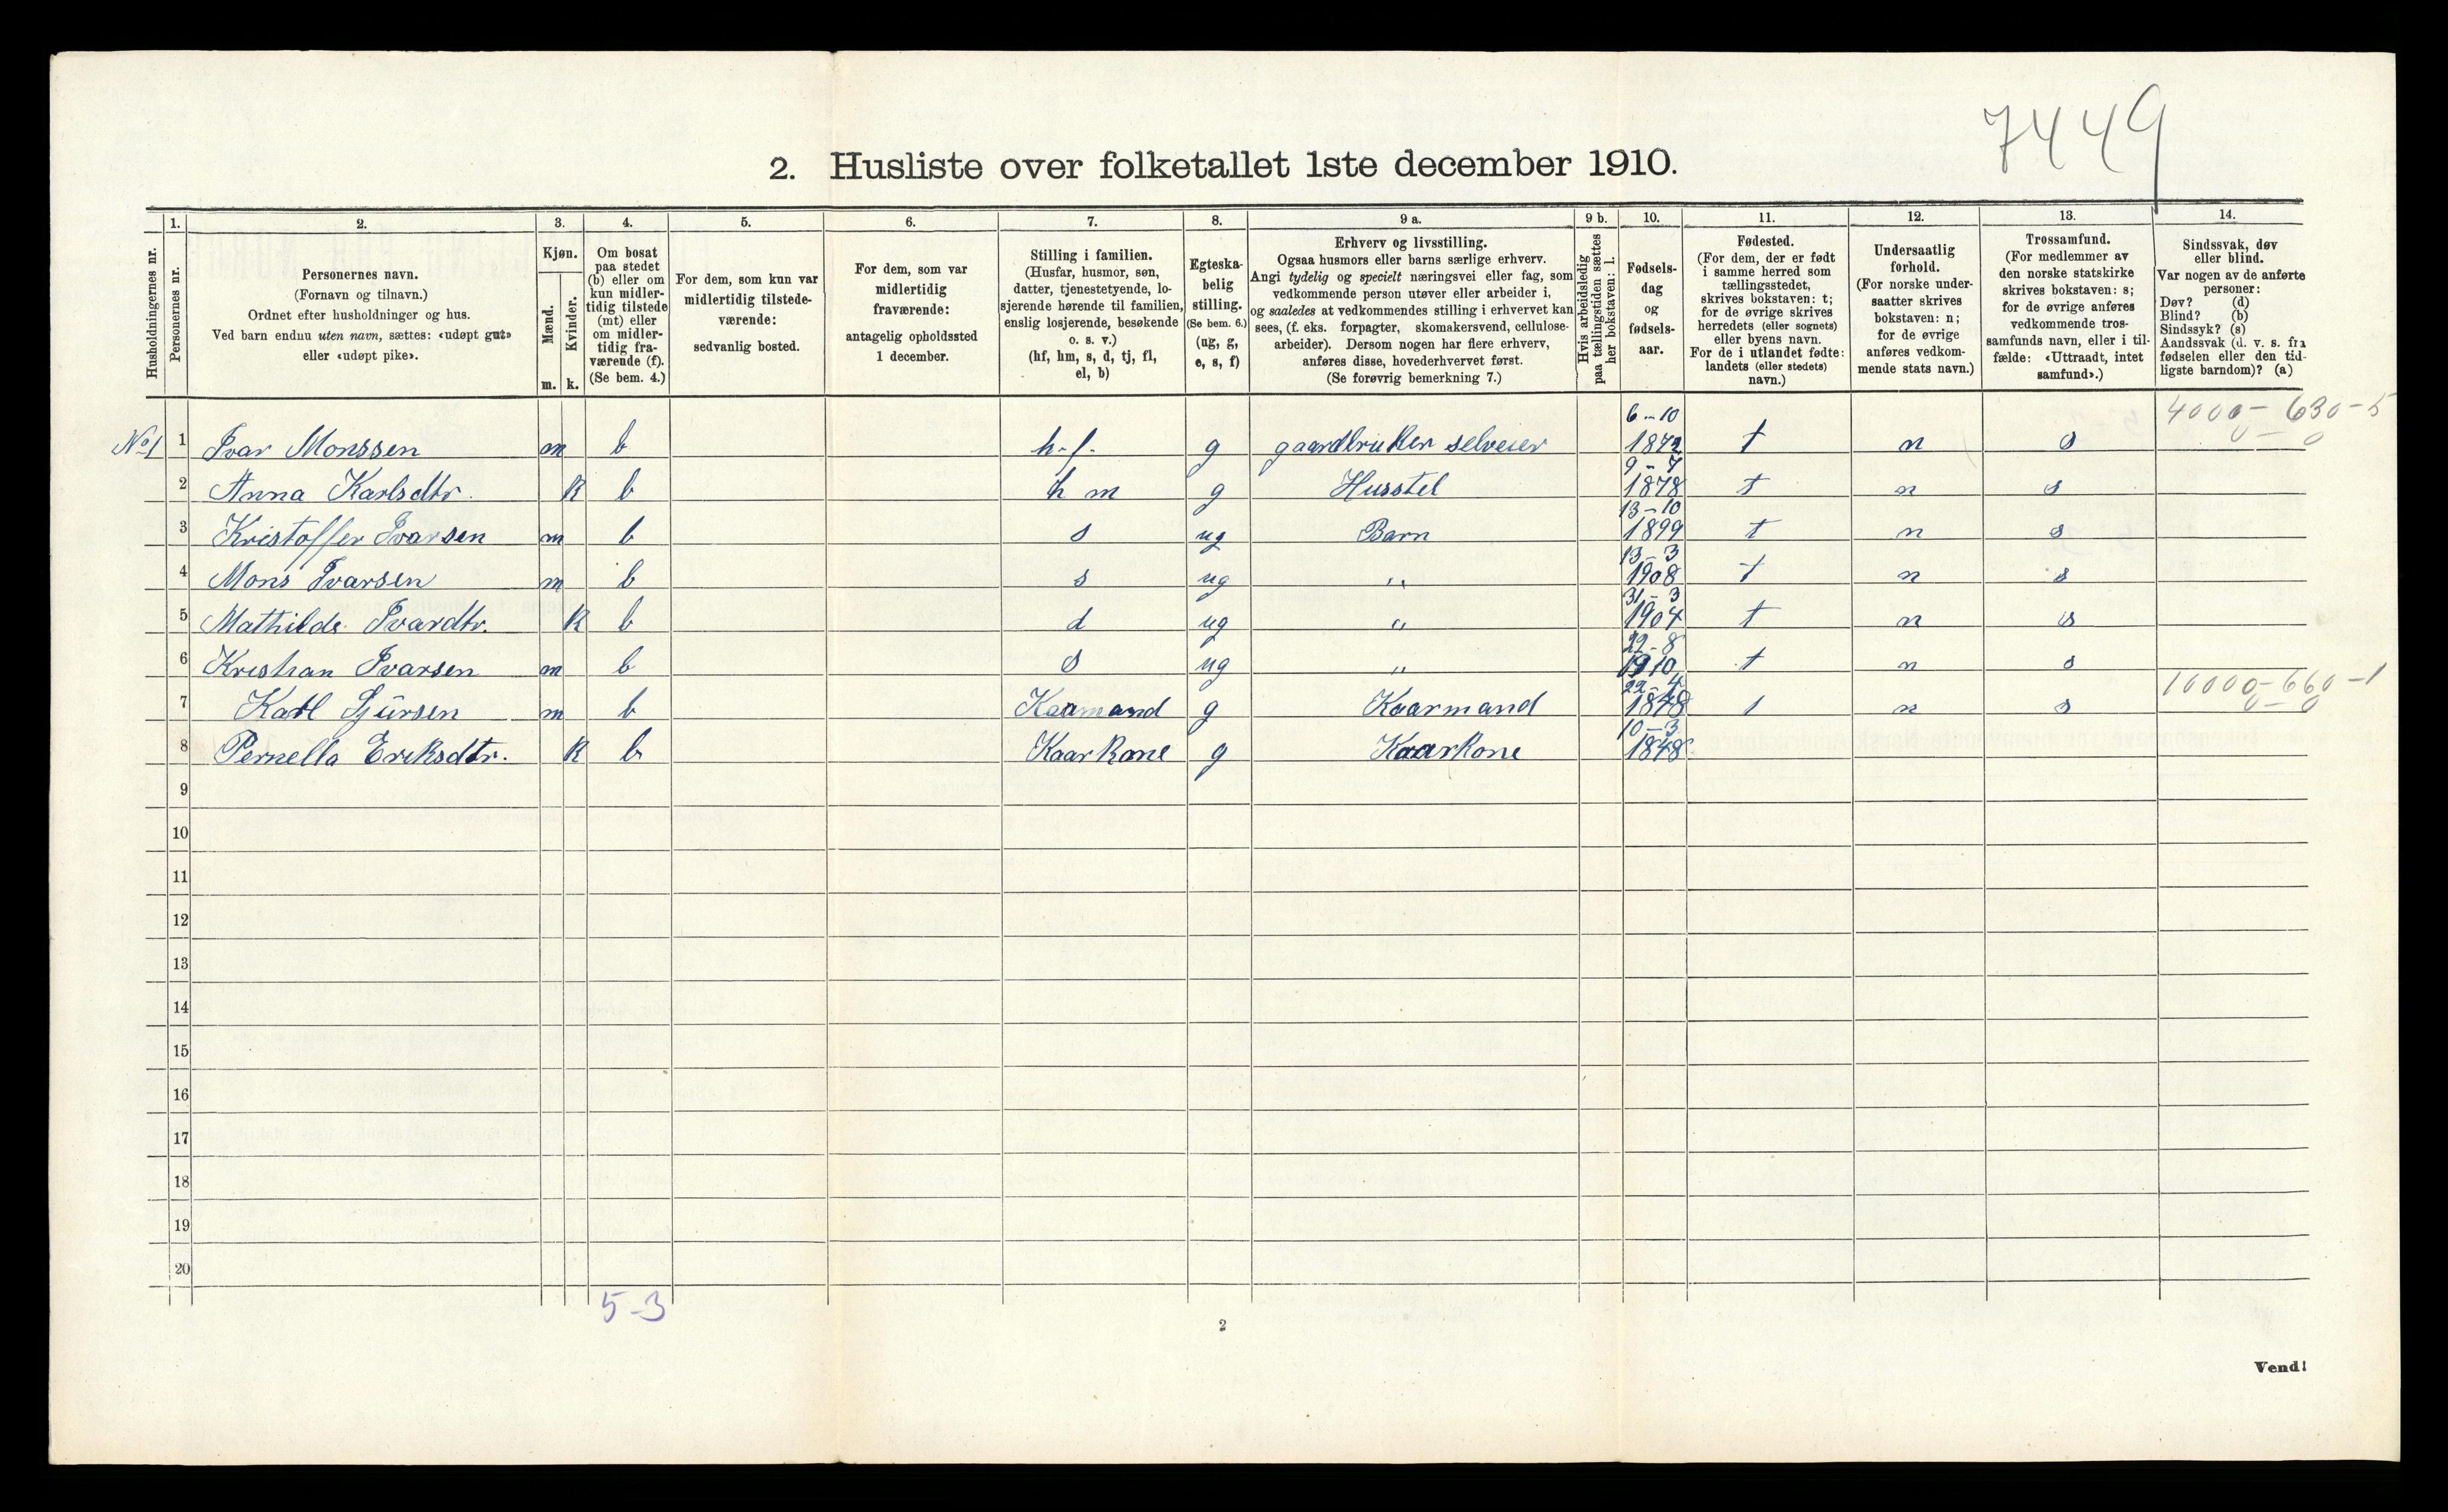 7449
2. Husliste over folketallet 1ste december 1910.
Husholdningernes nr.
1. Personernes nr.
2. Personernes navn.
(Fornavn og tilnavn.)
Ordnet efter husholdninger og hus.
Ved barn endnu uten navn, sættes: «udøpt gut»
eller «udøpt pike».
3. Kjøn.
Mænd. m.
Kvinder. k.
4. Om bosat
paa stedet
(b) eller om
kun midler-
tidig tilstede
(mt) eller
om midler-
tidig fra-
værende (f).
(Se bem. 4.)
5. For dem, som kun var
midlertidig tilstede-
værende:
sedvanlig bosted.
6. For dem, som var
midlertidig
fraværende:
antagelig opholdssted
1 december.
7. Stilling i familien.
(Husfar, husmor, søn,
datter, tjenestetyende, lo-
sjerende hørende til familien,
enslig losjerende, besøkende
o. s. v.)
(hf, hm, s, d, tj, fl,
el, b)
8. Egteska-
belig
stilling.
(Se bem. 6.)
(ug, g,
e, s, f)
9 a. Erhverv og livsstilling.
Ogsaa husmors eller barns særlige erhverv.
Angi tydelig og specielt næringsvei eller fag, som
vedkommende person utøver eller arbeider i,
og saaledes at vedkommendes stilling i erhvervet kan
sees, (f. eks. forpagter, skomakersvend, cellulose-
arbeider). Dersom nogen har flere erhverv,
anføres disse, hovederhvervet først.
(Se forøvrig bemerkning 7.)
9 b. Hvis arbeidsledig
paa tællingstiden sættes
her bokstaven: l.
10. Fødsels-
dag
og
fødsels-
aar.
11. Fødested.
(For dem, der er født
i samme herred som
tællingsstedet,
skrives bokstaven: t;
for de øvrige skrives
herredets (eller sognets)
eller byens navn.
For de i utlandet fødte:
landets (eller stedets)
navn.)
12. Undersaatlig
forhold.
(For norske under-
saatter skrives
bokstaven: n;
for de øvrige
anføres vedkom-
mende stats navn.)
13. Trossamfund.
(For medlemmer av
den norske statskirke
skrives bokstaven: s;
for de øvrige anføres
vedkommende tros-
samfunds navn, eller i til-
fælde: «Uttraadt, intet
samfund».)
14. Sindssvak, døv
eller blind.
Var nogen av de anførte
personer:
Døv? (d)
Blind? (b)
Sindssyk? (s)
Aandssvak (d. v. s. fra
fødselen eller den tid-
ligste barndom)? (a)
4000 - 630 - 5
0 - 0
No 1 1 Ivar Monssen m b h.f. g gaardbruker selveier 6-10 1872 t n s
2 Anna Karlsdtr. k b h m g Husstel 9-7 1878 t n s
3 Kristoffer Ivarsen m b s ug Barn 13-10 1899 t n s
4 Mons Ivarsen m b s ug " 13-3 1908 t n s
5 Mathilde Ivardtr. k b d ug " 31-3 1904 t n s
6 Kristian Ivarsen m b s ug " 22-8 1910 t n s
10000 - 660 - 1
0 - 0
7 Karl Sjursen m b Kaarmand g Kaarmand 22-4 1848 t n s
8 Pernella Eriksdtr. k b Kaarkone g Kaarkone 10-3 1848
9
10
11
12
13
14
15
16
17
18
19
20
5-3
2
Vend!